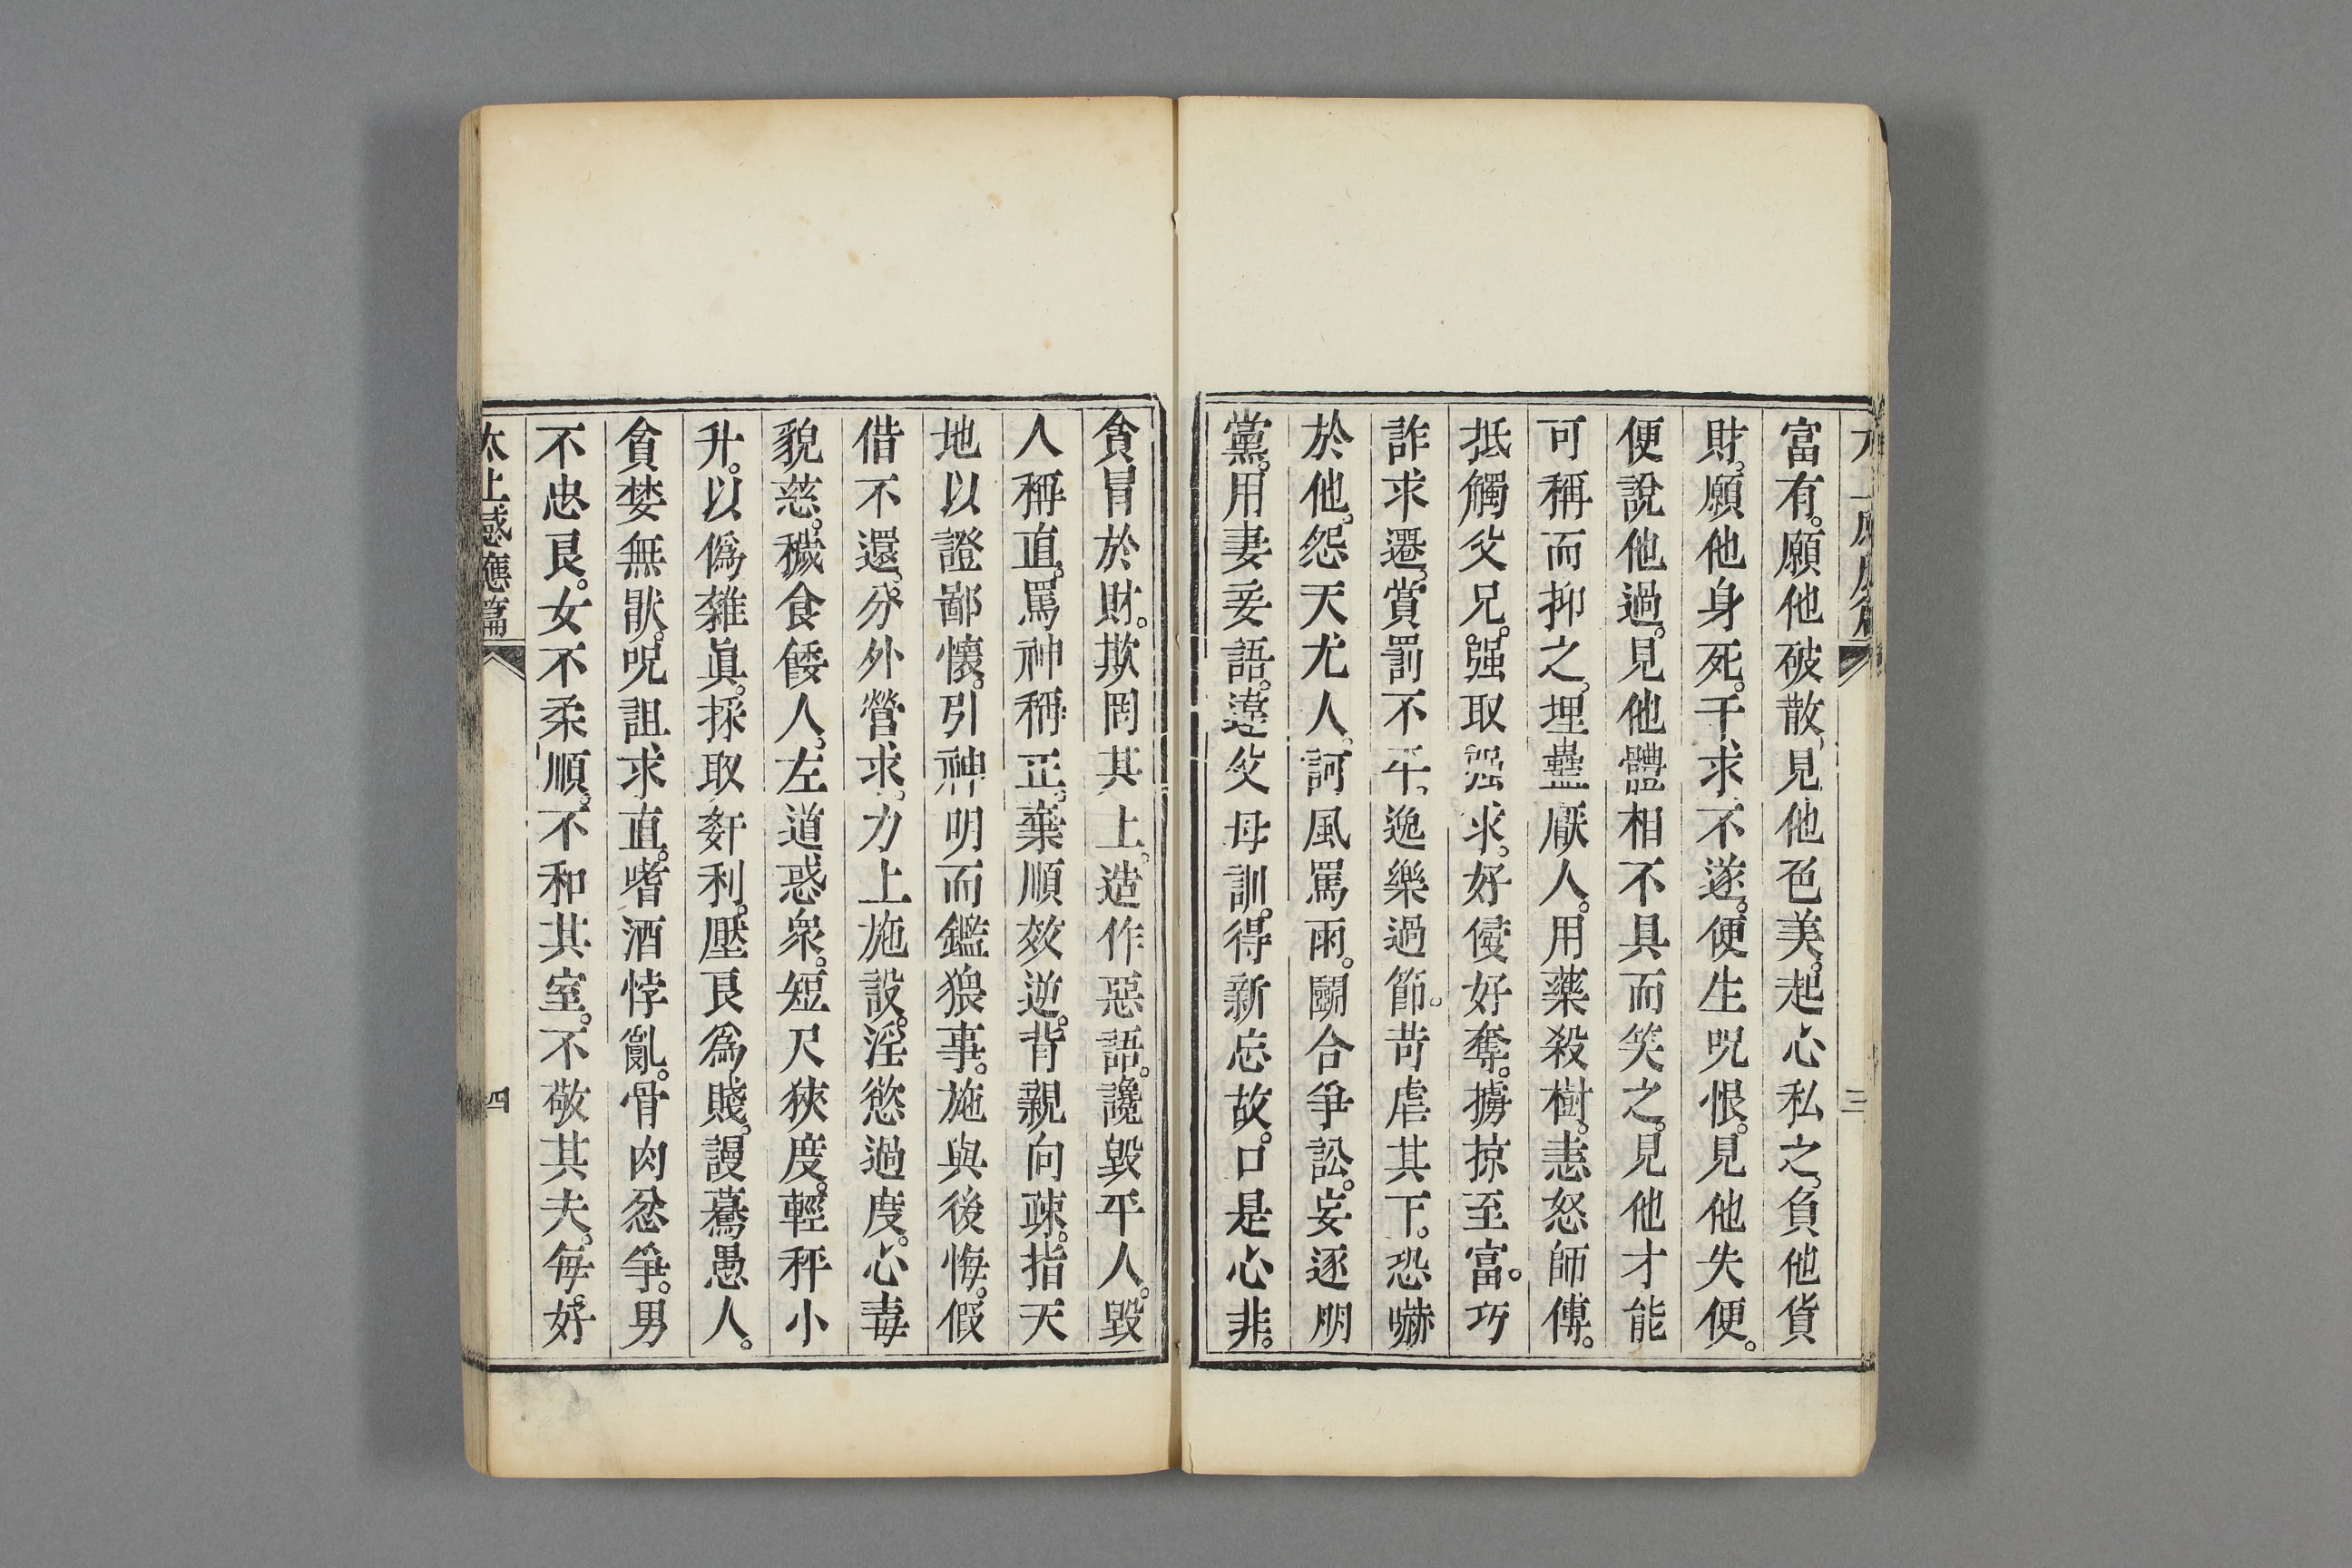 三
富有。願他破散。見他色美。起心私之。負他貨
財。願他身死。干求不遂。便生呪恨。見他失便。
便說他過。見他體相不具而笑之。見他才能
可稱而抑之。埋蠱厭人。用藥殺樹。恚怒師傅。
抵觸父兄。强取强求。好侵好奪。擄掠至富。巧
詐求遷。賞罰不平。逸樂過節。苛虐其下。恐嚇
於他。怨天尤人。訶風罵雨。鬭合爭訟。妄逐朋
黨。用妻妾語。違父母訓。得新忘故。口是心非。
貪冐於財。欺罔其上。造作惡語。讒毁平人。毁
人稱直。罵神稱正。棄順效逆。背親向疎。指天
地以證鄙懷。引神明而鑑猥事。施與後悔。假
借不還。分外營求。力上施設。淫慾過度。心毒
貌慈。穢食餧人。左道惑衆。短尺狹度。輕秤小
升。以僞雜眞。採取姧利。壓良爲賤。謾驀愚人。
貪婪無猒。呪詛求直。嗜酒悖亂。骨肉忿爭。男
不忠良。女不柔順。不和其室。不敬其夫。每好
太上感應篇 四